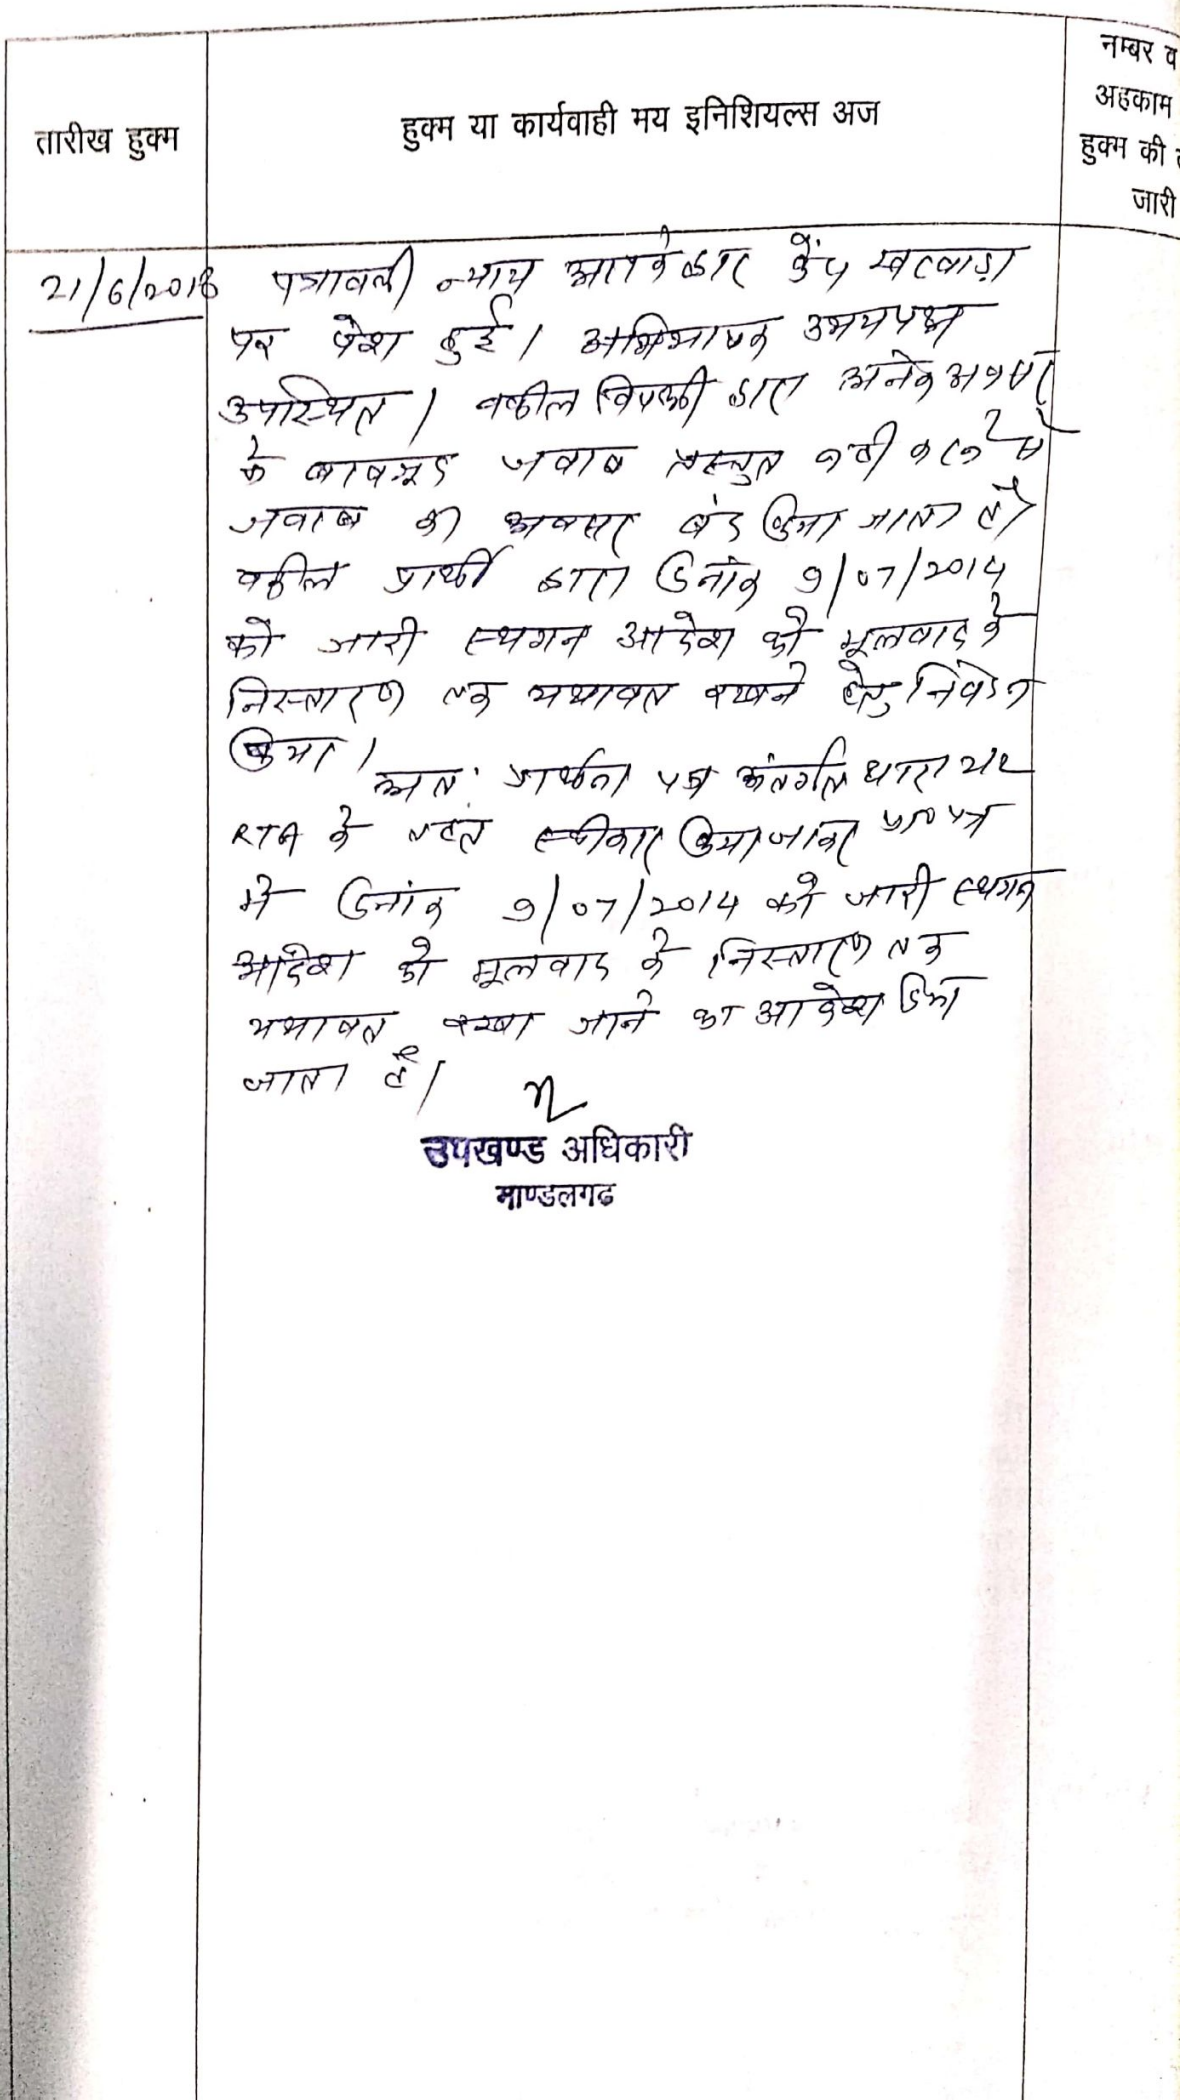 तारीख हुक्म
हुक्म या कार्यवाही मय इनिशियल्स अज
नम्बर व
अहकाम
हुक्म की
जारी
21/6/2018 पत्रावली न्याय आपके द्वार कैंप खटवाड़ा
पर पेश हुई। अभिभाषक उभयपक्ष
उपस्थित। वकील विपक्षी द्वारा अनेक अवसर
के बावजूद जवाब प्रस्तुत नही करने से
जवाब का अवसर बंद किया जाता है।
वकील प्रार्थी द्वारा दिनांक 9/07/2014
को जारी स्थगन आदेश को मूलवाद के
निस्तारण तक यथावत रखने हेतु निवेदन
किया।
अतः प्रार्थना पत्र अंतर्गत धारा 212
RTA के तहत स्वीकार किया जाकर प्रा० पत्र
में दिनांक 9/07/2014 को जारी स्थगन
आदेश को मूलवाद के निस्तारण तक
यथावत रखा जाने का आदेश दिया
जाता है।
उपखण्ड अधिकारी
माण्डलगढ